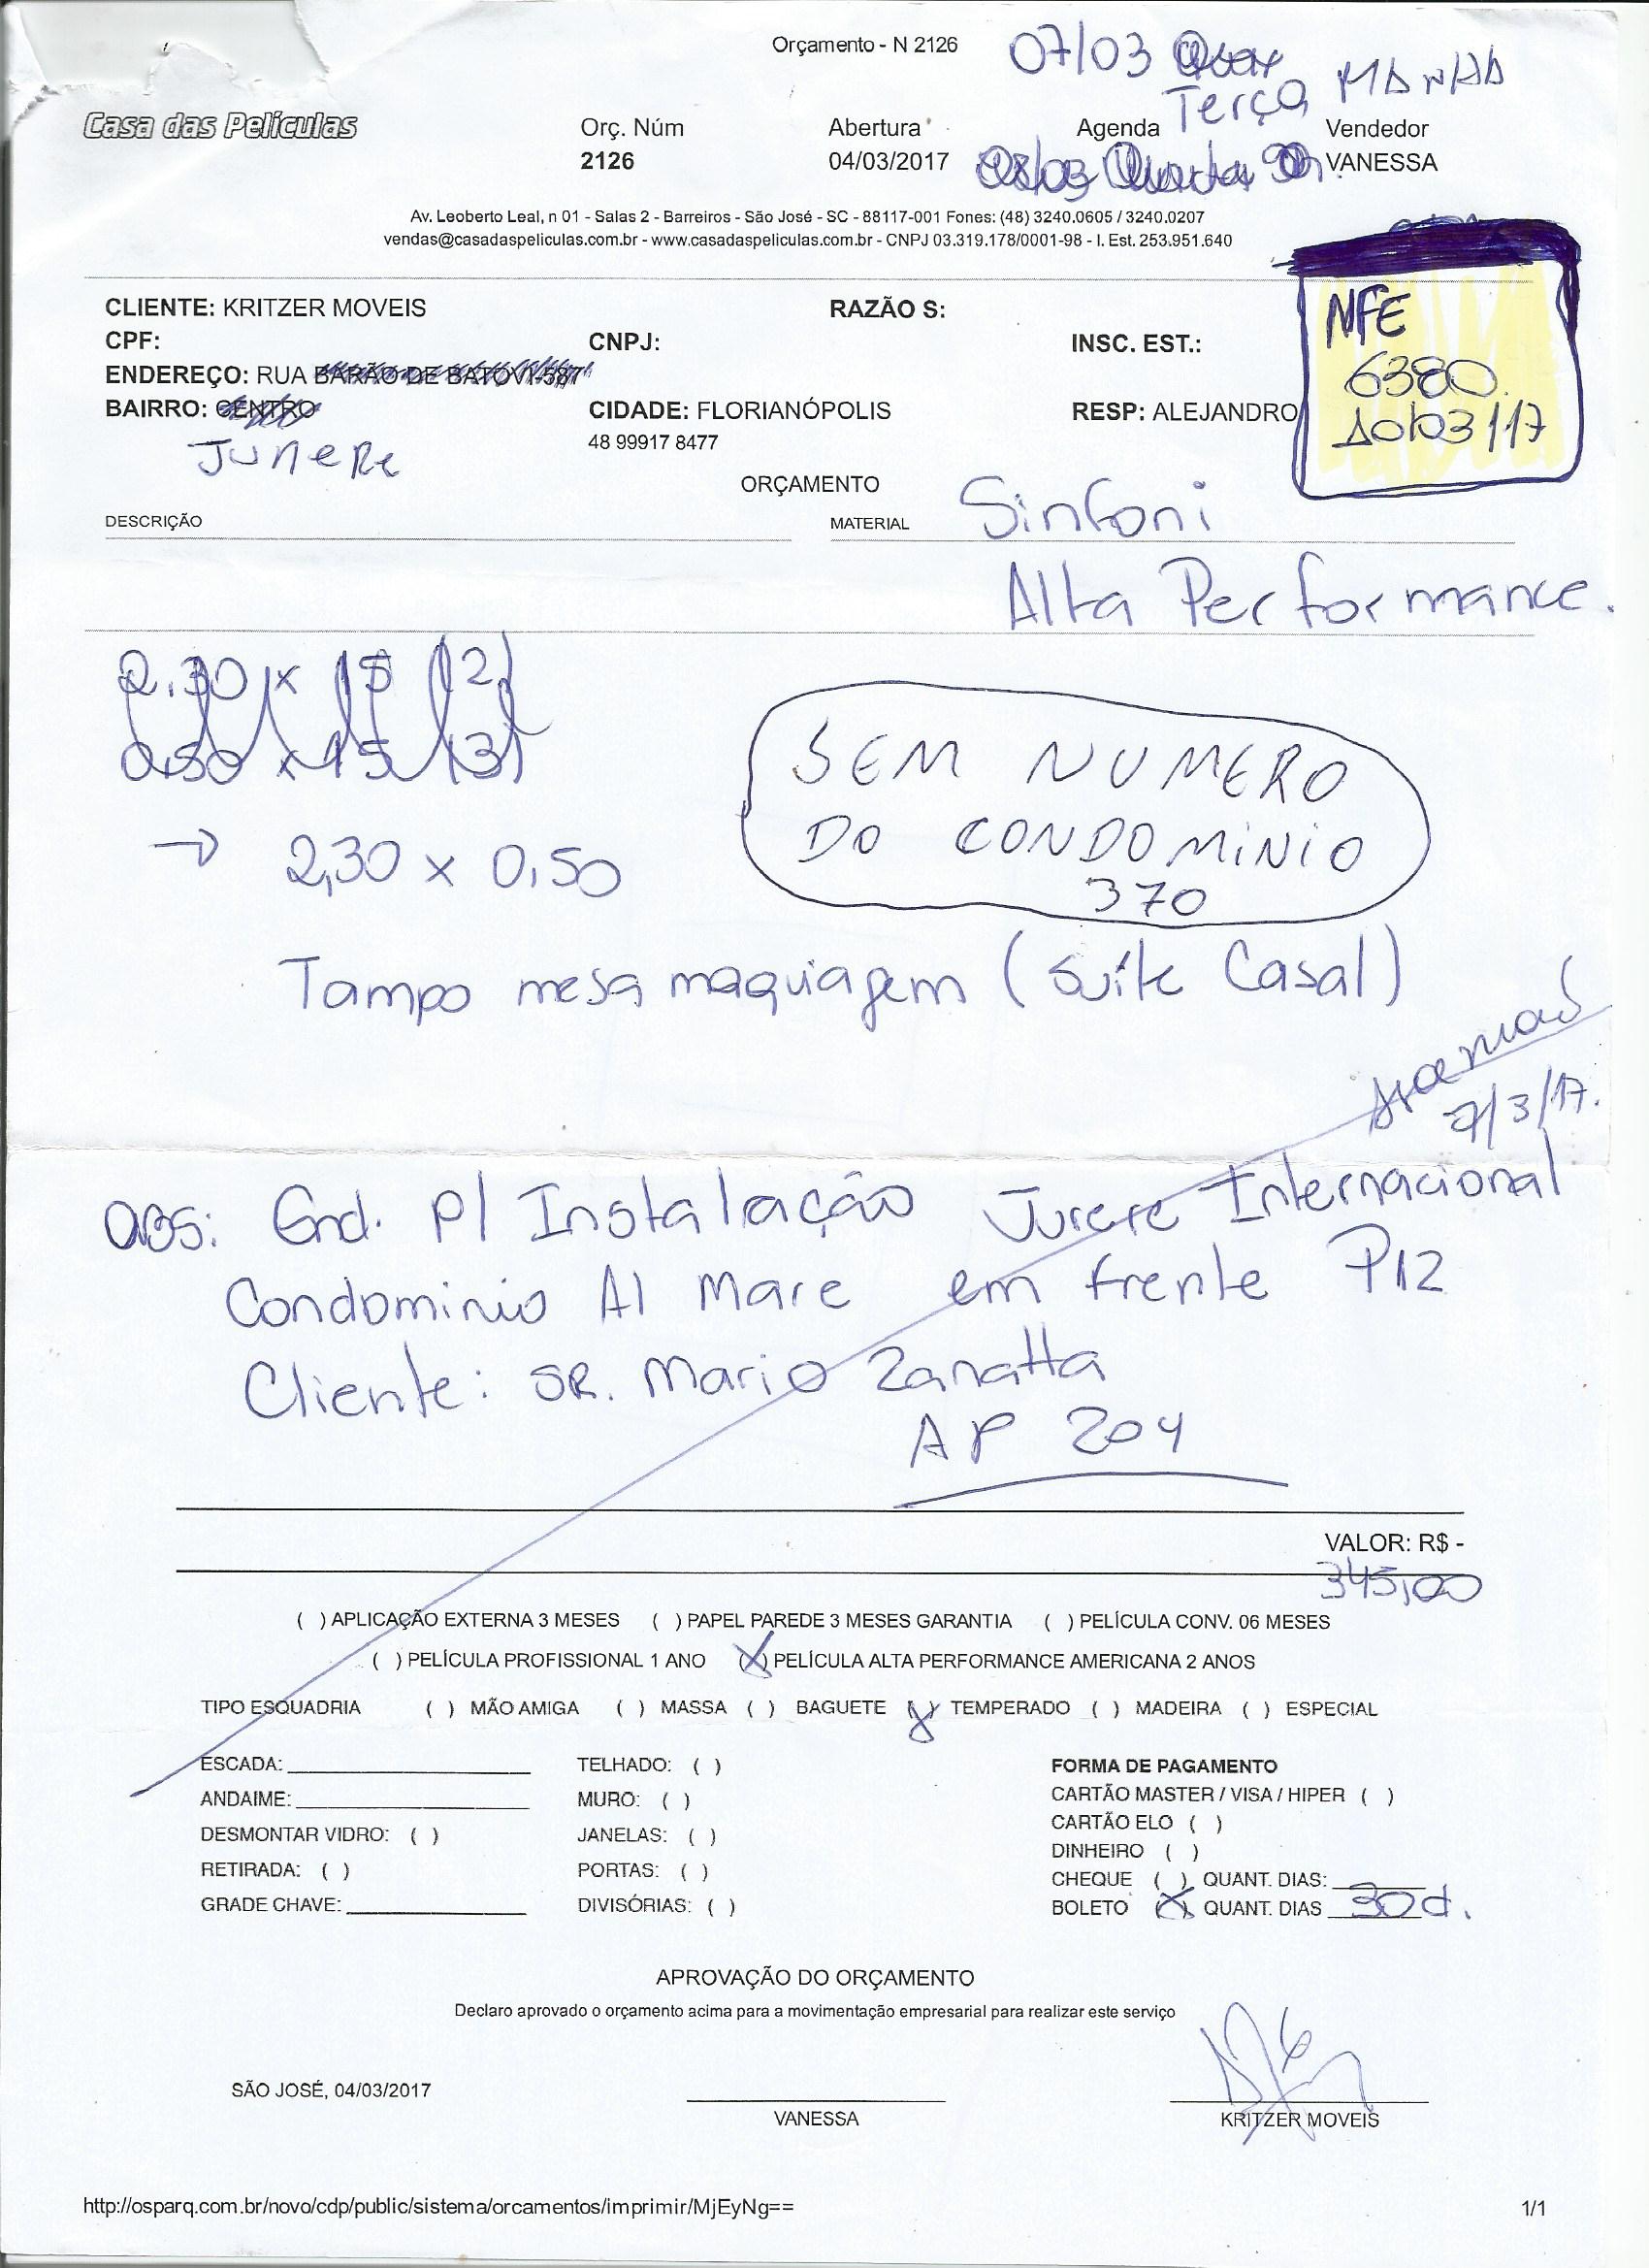 Orçamento - N 2126
07/03
Terça MANHÃ
Casa das Películas
Orç. Núm Abertura Agenda Vendedor
2126 04/03/2017 08/03 Quarta VANESSA
Av. Leoberto Leal, n 01 - Salas 2 - Barreiros - São José - SC - 88117-001 Fones: (48) 3240.0605 / 3240.0207
vendas@casadaspeliculas.com.br - www.casadaspeliculas.com.br - CNPJ 03.319.178/0001-98 - I. Est. 253.951.640
NFE
6380
10/03/17
CLIENTE: KRITZER MOVEIS RAZÃO S:
CPF: CNPJ: INSC. EST.:
ENDEREÇO: RUA BARÃO DE BATOVI-587
BAIRRO: CENTRO CIDADE: FLORIANÓPOLIS RESP: ALEJANDRO
48 99917 8477
Jurere
ORÇAMENTO
DESCRIÇÃO MATERIAL Sinfoni
Alta Performance.
2.30 x 15 (2)
0,50 x 15 (3)
SEM NUMERO
DO CONDOMINIO
370
→ 2,30 x 0,50
Tampo mesa maquiagem (suíte Casal)
7/3/17.
OBS: End. P/ Instalação Jurere Internacional
Condominio Al Mare em frente P12
Cliente: SR. Mario Zanatta
AP 204
VALOR: R$ -
345,00
( ) APLICAÇÃO EXTERNA 3 MESES ( ) PAPEL PAREDE 3 MESES GARANTIA ( ) PELÍCULA CONV. 06 MESES
( ) PELÍCULA PROFISSIONAL 1 ANO (X) PELÍCULA ALTA PERFORMANCE AMERICANA 2 ANOS
TIPO ESQUADRIA ( ) MÃO AMIGA ( ) MASSA ( ) BAGUETE (X) TEMPERADO ( ) MADEIRA ( ) ESPECIAL
ESCADA: TELHADO: ( ) FORMA DE PAGAMENTO
ANDAIME: MURO: ( ) CARTÃO MASTER / VISA / HIPER ( )
DESMONTAR VIDRO: ( ) JANELAS: ( ) CARTÃO ELO ( )
RETIRADA: ( ) PORTAS: ( ) DINHEIRO ( )
GRADE CHAVE: DIVISÓRIAS: ( ) CHEQUE ( ) QUANT. DIAS:
BOLETO (X) QUANT. DIAS 30 d.
APROVAÇÃO DO ORÇAMENTO
Declaro aprovado o orçamento acima para a movimentação empresarial para realizar este serviço
SÃO JOSÉ, 04/03/2017
VANESSA KRITZER MOVEIS
http://osparq.com.br/novo/cdp/public/sistema/orcamentos/imprimir/MjEyNg== 1/1